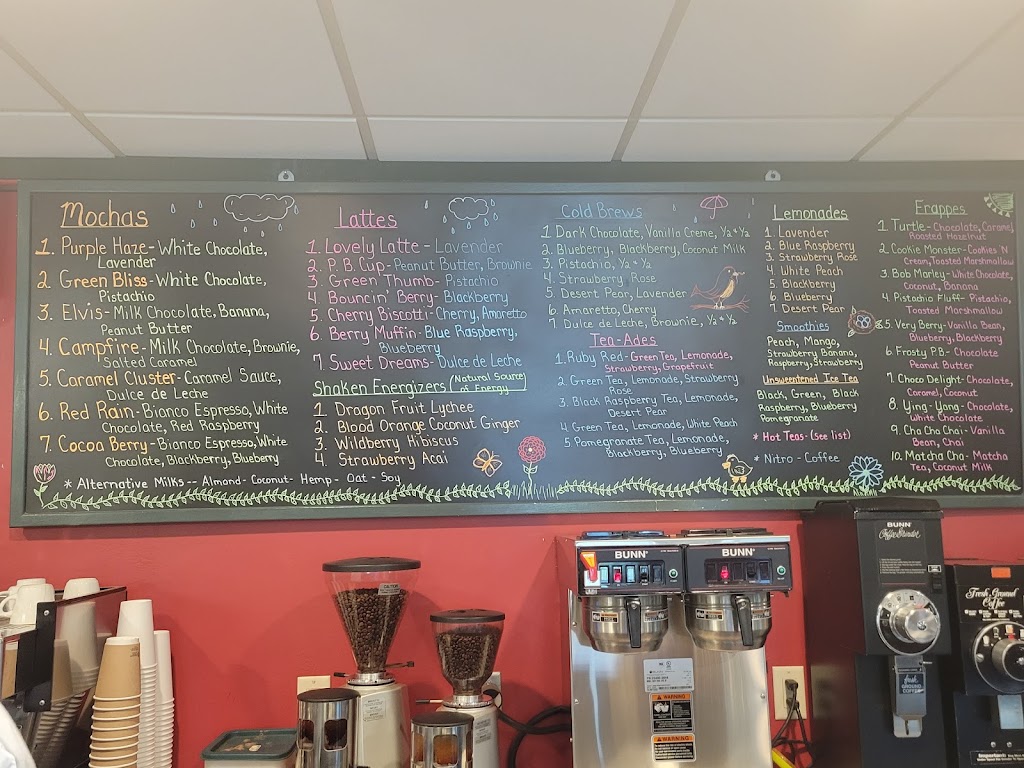 Mochas
1. Purple Haze - White Chocolate,
Lavender
2. Green Bliss - White Chocolate,
Pistachio
3. Elvis - Milk Chocolate, Banana,
Peanut Butter
4. Campfire - Milk Chocolate, Brownie,
Salted Caramel
5. Caramel Cluster - Caramel Sauce,
Dulce de Leche
6. Red Rain - Bianco Espresso, White
Chocolate, Red Raspberry
7. Cocoa Berry - Bianco Espresso, White
Chocolate, Blackberry, Blueberry
* Alternative Milks -- Almond - Coconut - Hemp - Oat - Soy
Lattes
1. Lovely Latte - Lavender
2. P.B. Cup - Peanut Butter, Brownie
3. Green Thumb - Pistachio
4. Bouncin' Berry - Blackberry
5. Cherry Biscotti - Cherry, Amaretto
6. Berry Muffin - Blue Raspberry,
Blueberry
7. Sweet Dreams - Dulce de Leche
Shaken Energizers (Natural Source
of Energy
1. Dragon Fruit Lychee
2. Blood Orange Coconut Ginger
3. Wildberry Hibiscus
4. Strawberry Acai
Cold Brews
1 Dark Chocolate, Vanilla Creme, ½ & ½
2. Blueberry, Blackberry, Coconut Milk
3. Pistachio, ½ & ½
4. Strawberry Rose
5. Desert Pear, Lavender
6. Amaretto, Cherry
7 Dulce de Leche, Brownie, ½ & ½
Tea-Ades
1. Ruby Red - Green Tea, Lemonade,
Strawberry, Grapefruit
2. Green Tea, Lemonade, Strawberry
Rose
3. Black Raspberry Tea, Lemonade,
Desert Pear
4. Green Tea, Lemonade, White Peach
5. Pomegranate Tea, Lemonade,
Blackberry, Blueberry
Lemonades
1. Lavender
2. Blue Raspberry
3. Strawberry Rose
4. White Peach
5. Blackberry
6. Blueberry
7. Desert Pear
Smoothies
Peach, Mango,
Strawberry Banana,
Raspberry, Strawberry
Unsweentened Ice Tea
Black, Green, Black
Raspberry, Blueberry
Pomegranate
* Hot Teas - (See list)
* Nitro - Coffee
Frappes
1. Turtle - Chocolate, Caramel,
Roasted Hazelnut
2. Cookie Monster - Cookies 'N
Cream, Toasted Marshmallow
3. Bob Marley - White Chocolate,
Coconut, Banana
4. Pistachio Fluff - Pistachio,
Toasted Marshmallow
5. Very Berry - Vanilla Bean,
Blueberry, Blackberry
6. Frosty P.B - Chocolate
Peanut Butter
7. Choco Delight - Chocolate,
Caramel, Coconut
8. Ying-Yang - Chocolate,
White Chocolate
9. Cha Cha Chai - Vanilla
Bean, Chai
10. Matcha Cha - Matcha
Tea, Coconut Milk
BUNN
BUNN
WARNING
WARNING
BUNN
Coffee Grinder
fresh
GROUND
COFFEE
Fresh Ground
Coffee